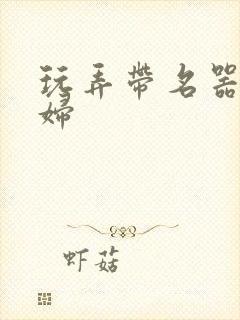 玩弄带名器
婦
虾菇